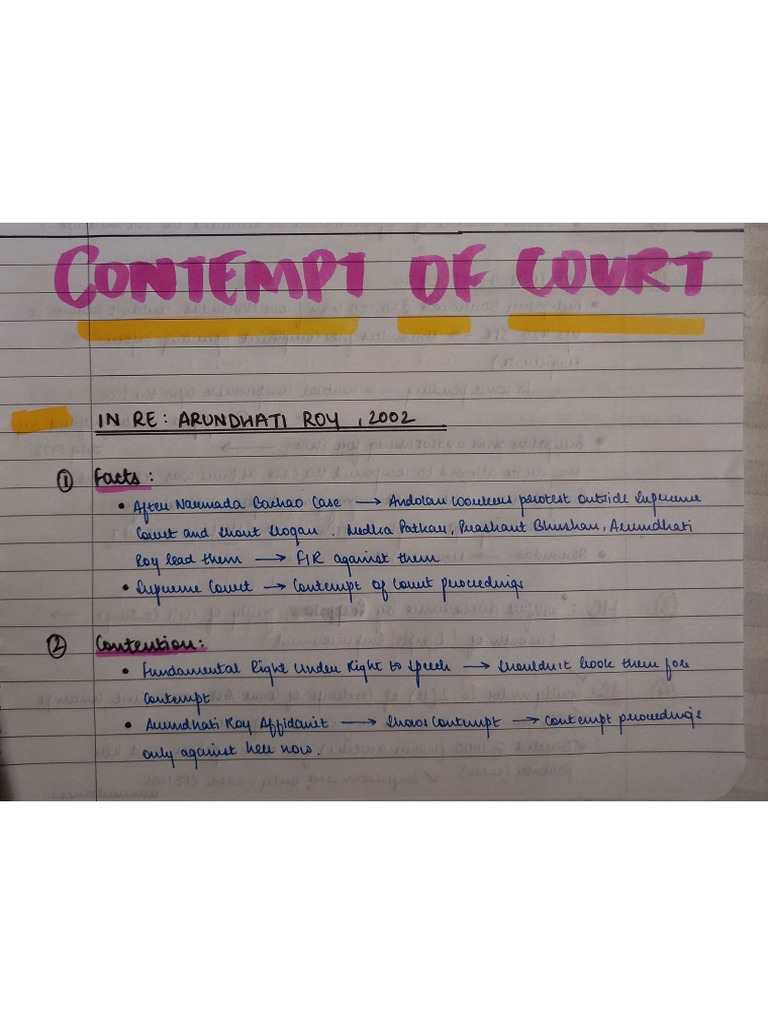 CONTEMPT OF COURT
IN RE: ARUNDHATI ROY, 2002
① Facts:
• After Narmada Bachao Case → Andolan workers protest outside Supreme
Court and shout slogan. Medha Patkar, Prashant Bhushan, Arundhati
Roy lead them → FIR against them
• Supreme Court → Contempt of Court proceedings
② Contention:
• Fundamental Right under Right to Speech → shouldn't book them for
contempt
• Arundhati Roy Affidavit → shows contempt → contempt proceedings
only against her now.